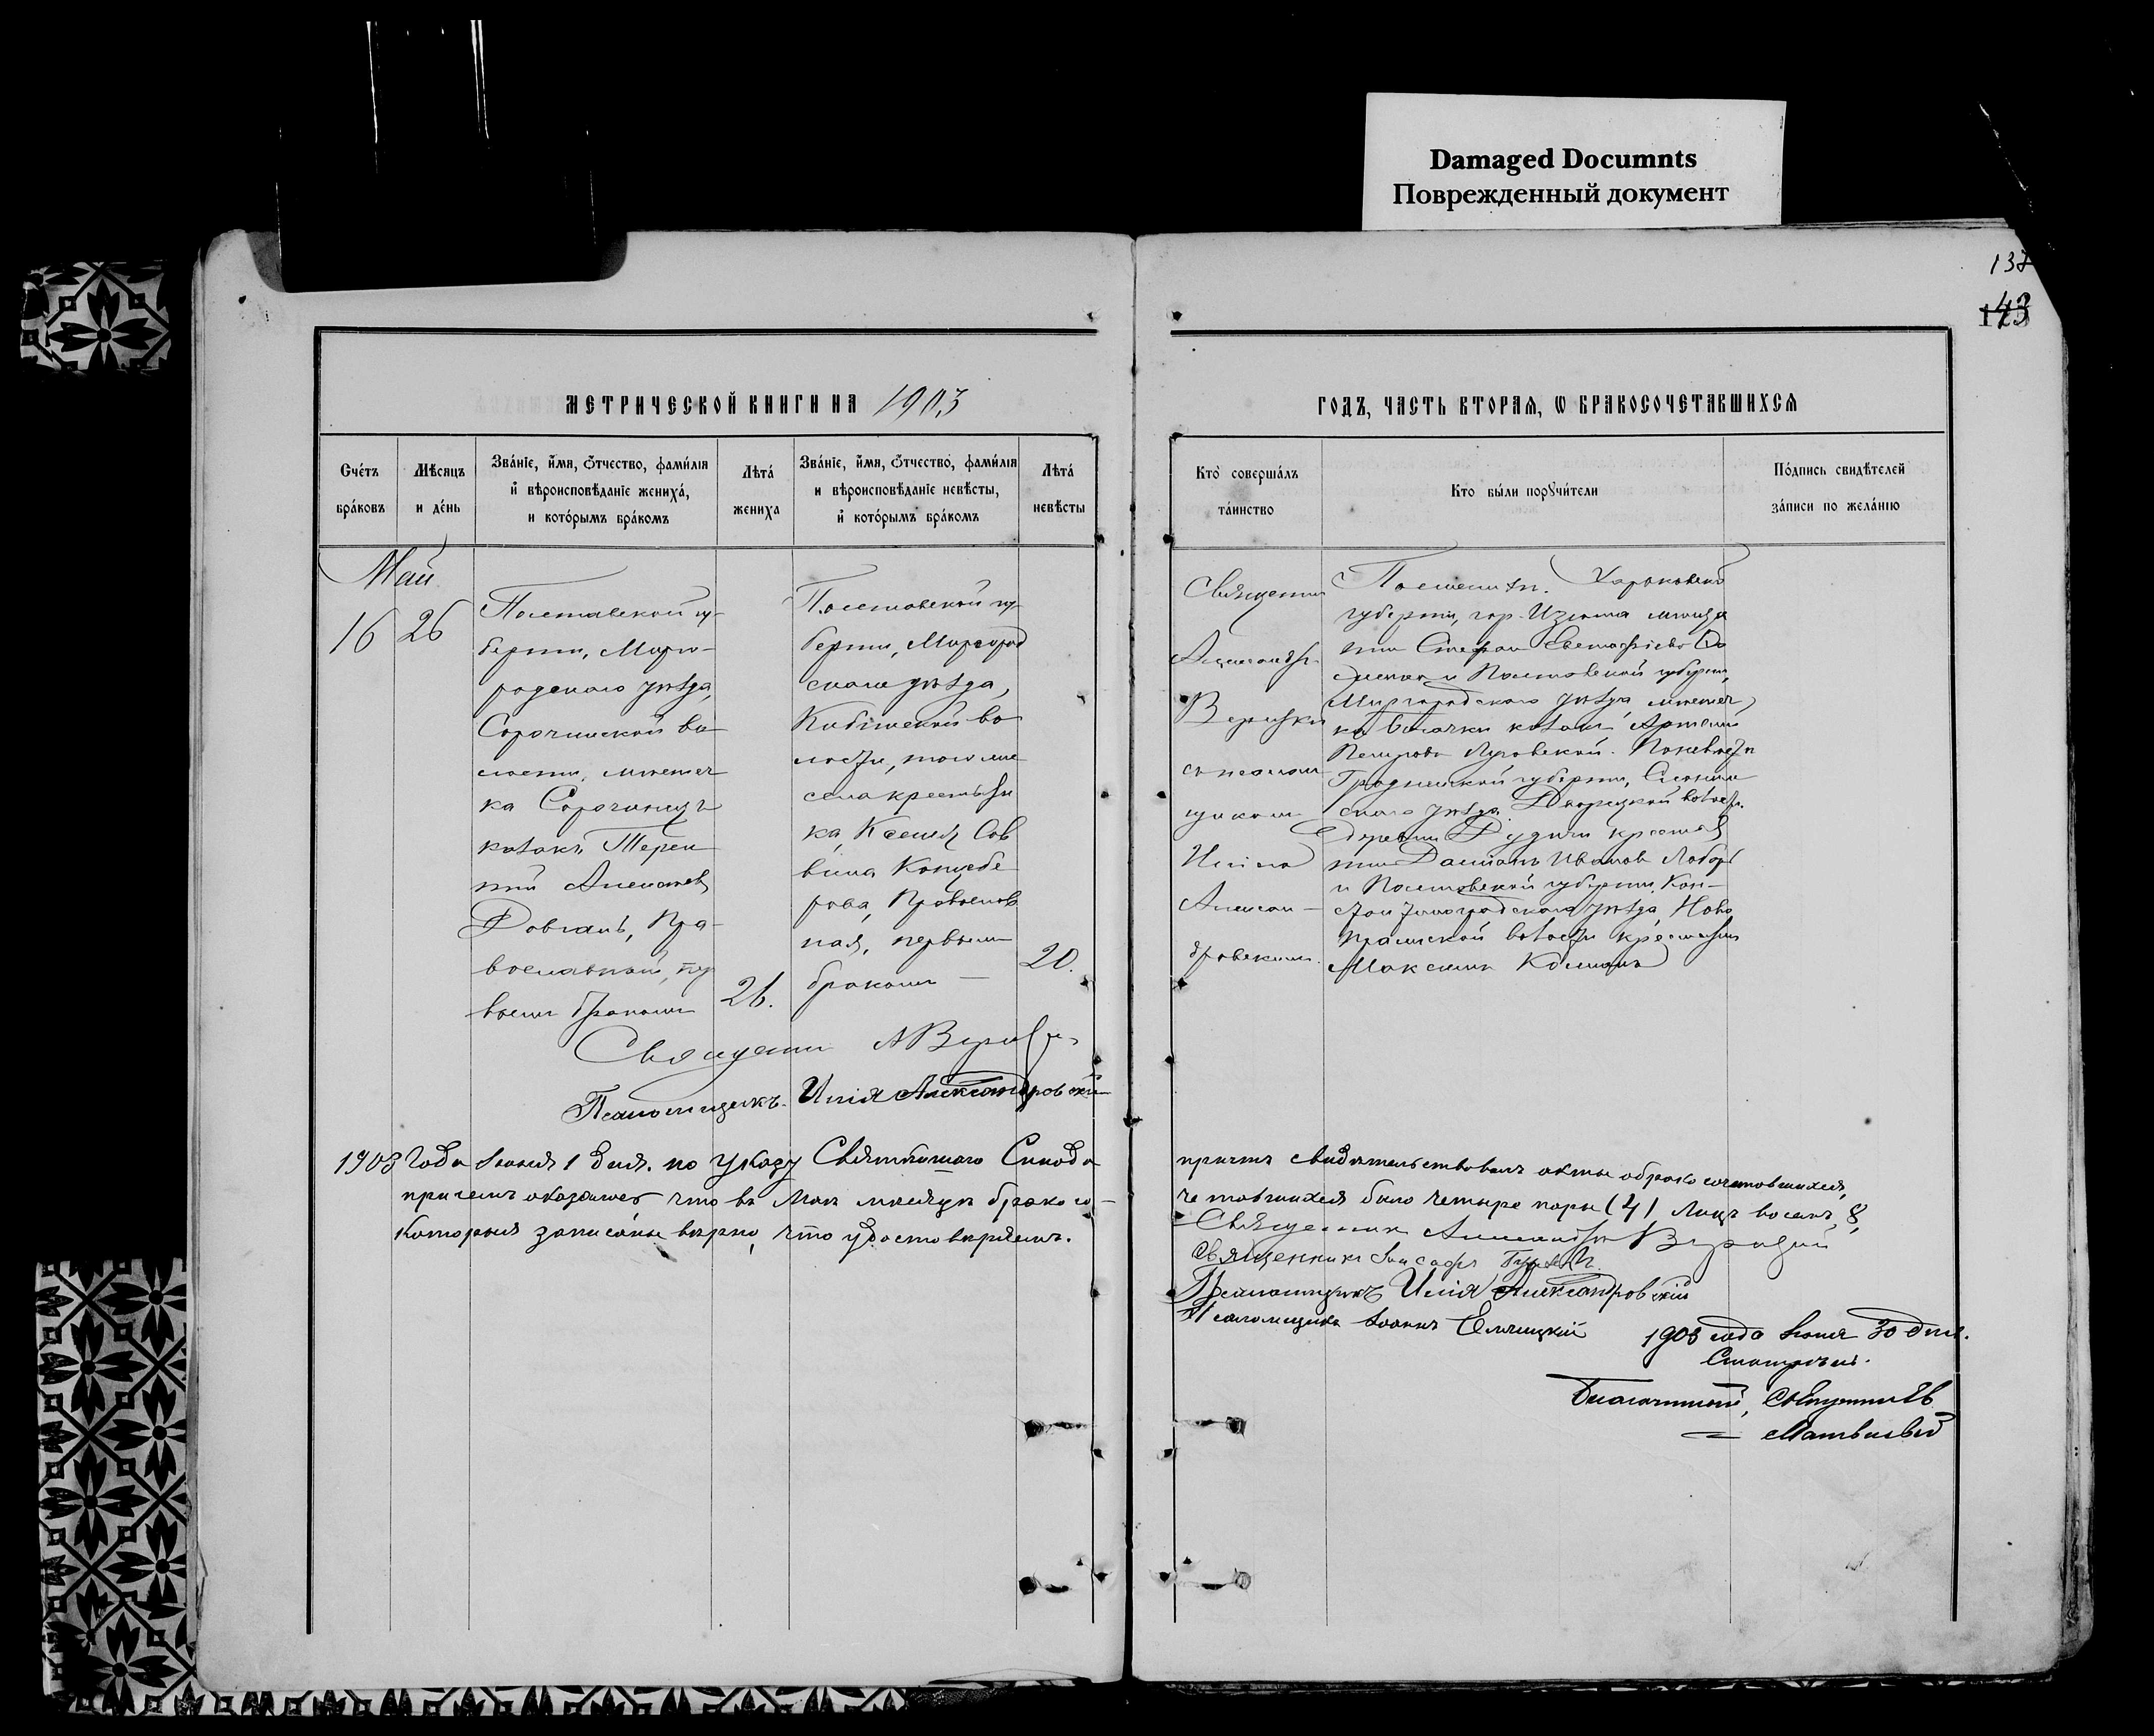 Damaged Documnts
Поврежденный документ
137
143
МЕТРИЧЕСКОЙ КНИГИ НА 1903
ГОДЪ, ЧАСТЬ ВТОРАЯ, Ѡ БРАКОСОЧЕТАВШИХСЯ
Счётъ браковъ
Мѣсяцъ и день
Званіе, имя, ѻтчество, фамилія и вѣроисповѣданіе жениха, и которымъ бракомъ
Лѣта жениха
Званіе, имя, ѻтчество, фамилія и вѣроисповѣданіе невѣсты, и которымъ бракомъ
Лѣта невѣсты
Кто совершалъ таинство
Кто были поручители
Подпись свидѣтелей записи по желанію
Май
16
26
Полтавской гу-
берніи, Мирго-
родскаго уѣзда,
Сорочинской во-
лости, мѣстеч
ка Сорочинецъ
козакъ Терен
тій Алексѣевъ
Довгаль, Пра-
вославный, пер
вымъ бракомъ
26.
Полтавской гу-
берніи, Миргород
скаго уѣзда,
Кибинской во
лости, того же
села крестьян
ка, Ксенія Сав
вина Коцюбе
рова, Православ
ная, первымъ
бракомъ
20.
Священник
Александр
Вершицкій
съ псалом
щиком
Иліею
Алексан-
дровским.
По женихѣ. Харьковской
губерніи, гор. Изюма мѣща
нин Стефан
и Полтавской губерніи,
Миргородскаго уѣзда, мѣстеч
ка Бѣлачки козак Артемій
Петровъ Луговской. По невѣстѣ
Гродненской губерніи, Слоним
скаго уѣзда, Дворецкой волости.
деревни Дудичи крестья
нин Даміанъ Ивановъ
и Полтавской губерніи, Кон-
стантиноградскаго уѣзда, Ново
волости крестьянин
Максимъ
Священник А
Псаломщикъ. Илія Александровскій
1903 года Іюня 1 дня. по указу Святѣйшаго Синода
причтъ свидѣтельствовалъ акты о бракосочетавшихся,
причемъ оказалось, что въ Маѣ мѣсяцѣ бракосо-
четавшихся было четыре пары (4) лицъ восемь, 8,
которыя записаны вѣрно, что удостовѣряемъ.
Священник Александръ
Священникъ Іоасафъ
Псаломщикъ Илія Александровскій
Псаломщикъ Іоаннъ
1903 года Іюня 30 дня.
Смотрѣлъ.
Благочинный, священникъ
Матвѣевъ